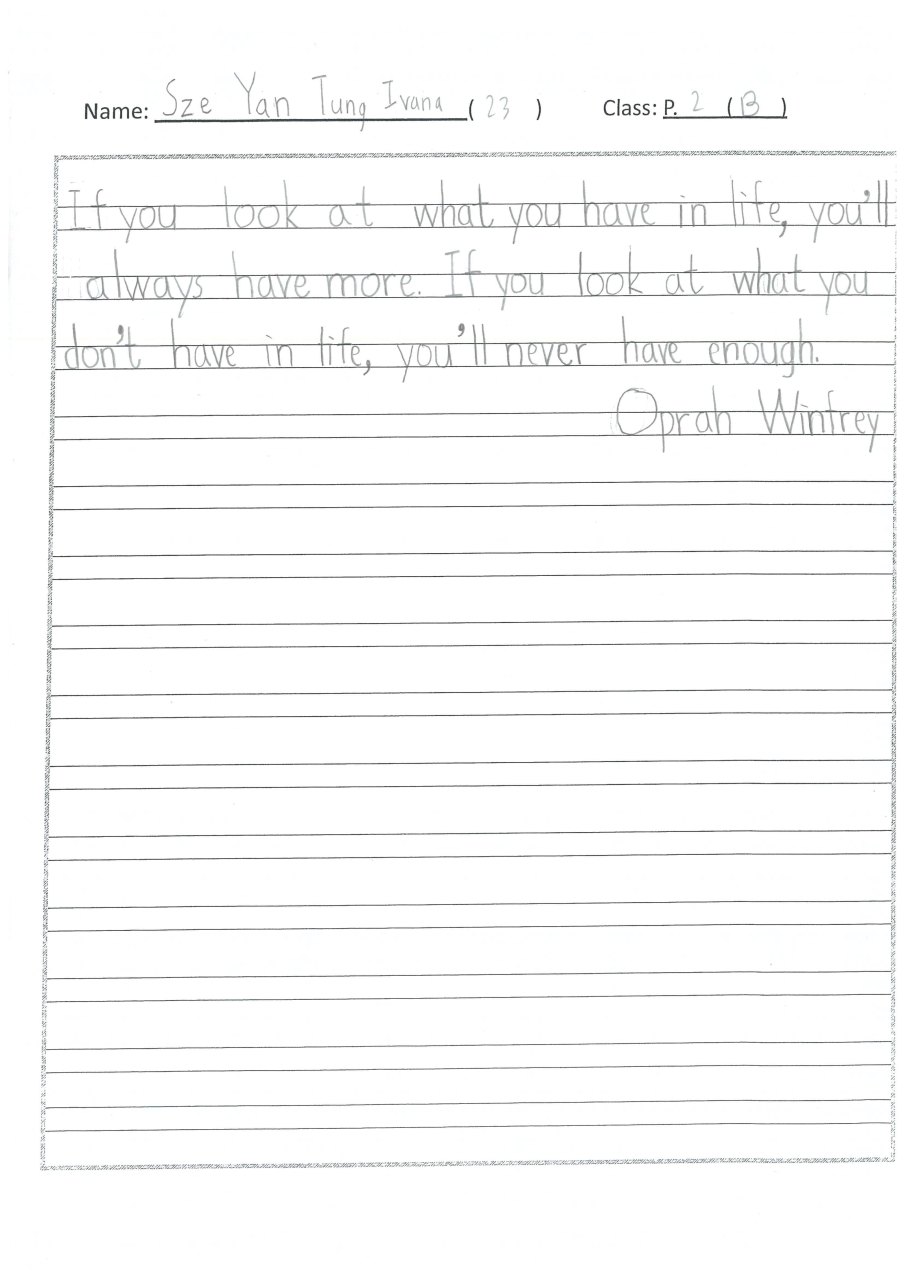 Name: Sze Yan Tung Ivana ( 23 ) Class: P. 2 ( B )
If you look at what you have in life, you'll
always have more. If you look at what you
don't have in life, you'll never have enough.
Oprah Winfrey